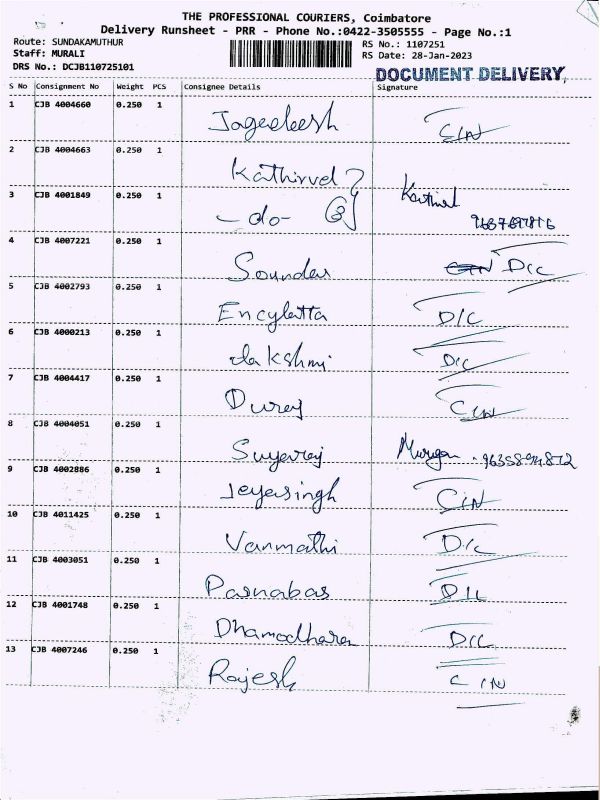 THE PROFESSIONAL COURIERS, Coimbatore
Delivery Runsheet - PRR - Phone No.:0422-3505555 - Page No.:1
Route: SUNDAKAMUTHUR RS No.: 1107251
Staff: MURALI RS Date: 28-Jan-2023
DRS No.: DCJB110725101 DOCUMENT DELIVERY
S No Consignment No Weight PCS Consignee Details Signature
1 CJB 4004660 0.250 1 Jageeleesh CIN
2 CJB 4004663 0.250 1 Kathirvel
3 CJB 4001849 0.250 1 -do-
4 CJB 4007221 0.250 1 Soundar DIC
5 CJB 4002793 0.250 1 DIC
6 CJB 4000213 0.250 1 Lakshmi DIC
7 CJB 4004417 0.250 1 Duraj CIN
8 CJB 4004051 0.250 1 Murugan
9 CJB 4002886 0.250 1 Jeyasingh CIN
10 CJB 4011425 0.250 1 Vanmathi DIC
11 CJB 4003051 0.250 1 Parnabas DIL
12 CJB 4001748 0.250 1 Dhamodharan DIC
13 CJB 4007246 0.250 1 Rajesh CIN